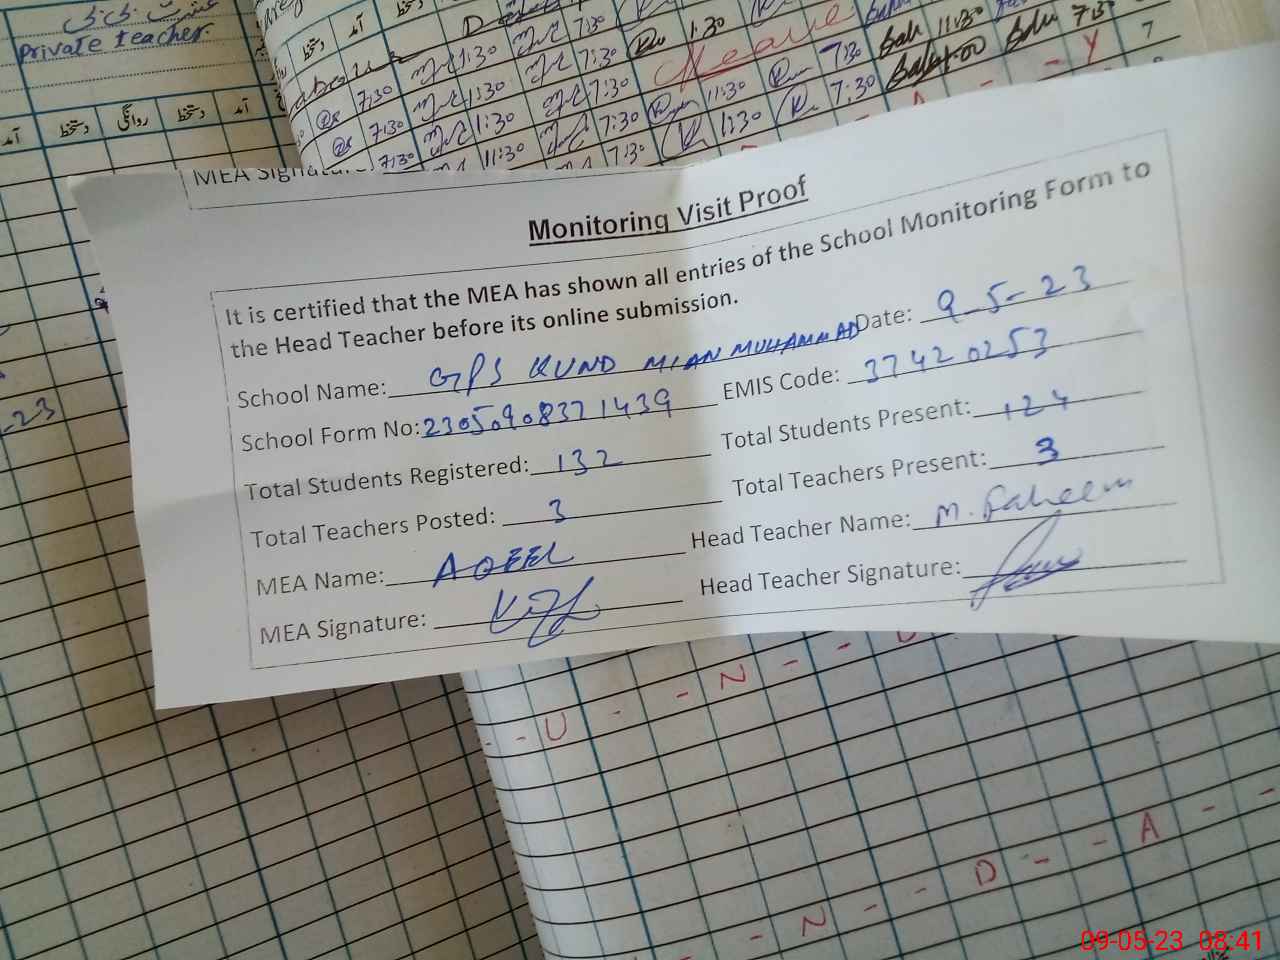 عشرت بی بی
Private teacher.
آمد دستخط روانگی دستخط آمد
دستخط آمد دستخط D
1:30 7:30 1:30 11:30 7:30
7:30 1:30 7:30 Leave 7:30 1:00 Y 7
7:30 1:30 7:30 11:30 7:30
7:30 11:30 7:30 1:30
-23
MEA Signature
Monitoring Visit Proof
It is certified that the MEA has shown all entries of the School Monitoring Form to
the Head Teacher before its online submission.
School Name: GPS KUND MIAN MUHAMMAD Date: 9-5-23
School Form No: 23050908371439 EMIS Code: 37420253
Total Students Registered: 132 Total Students Present: 124
Total Teachers Posted: 3 Total Teachers Present: 3
MEA Name: AQEEL Head Teacher Name: M. Faheem
MEA Signature: Head Teacher Signature:
- - U - - N - - D
- N - - D - - A - -
09-05-23 08:41